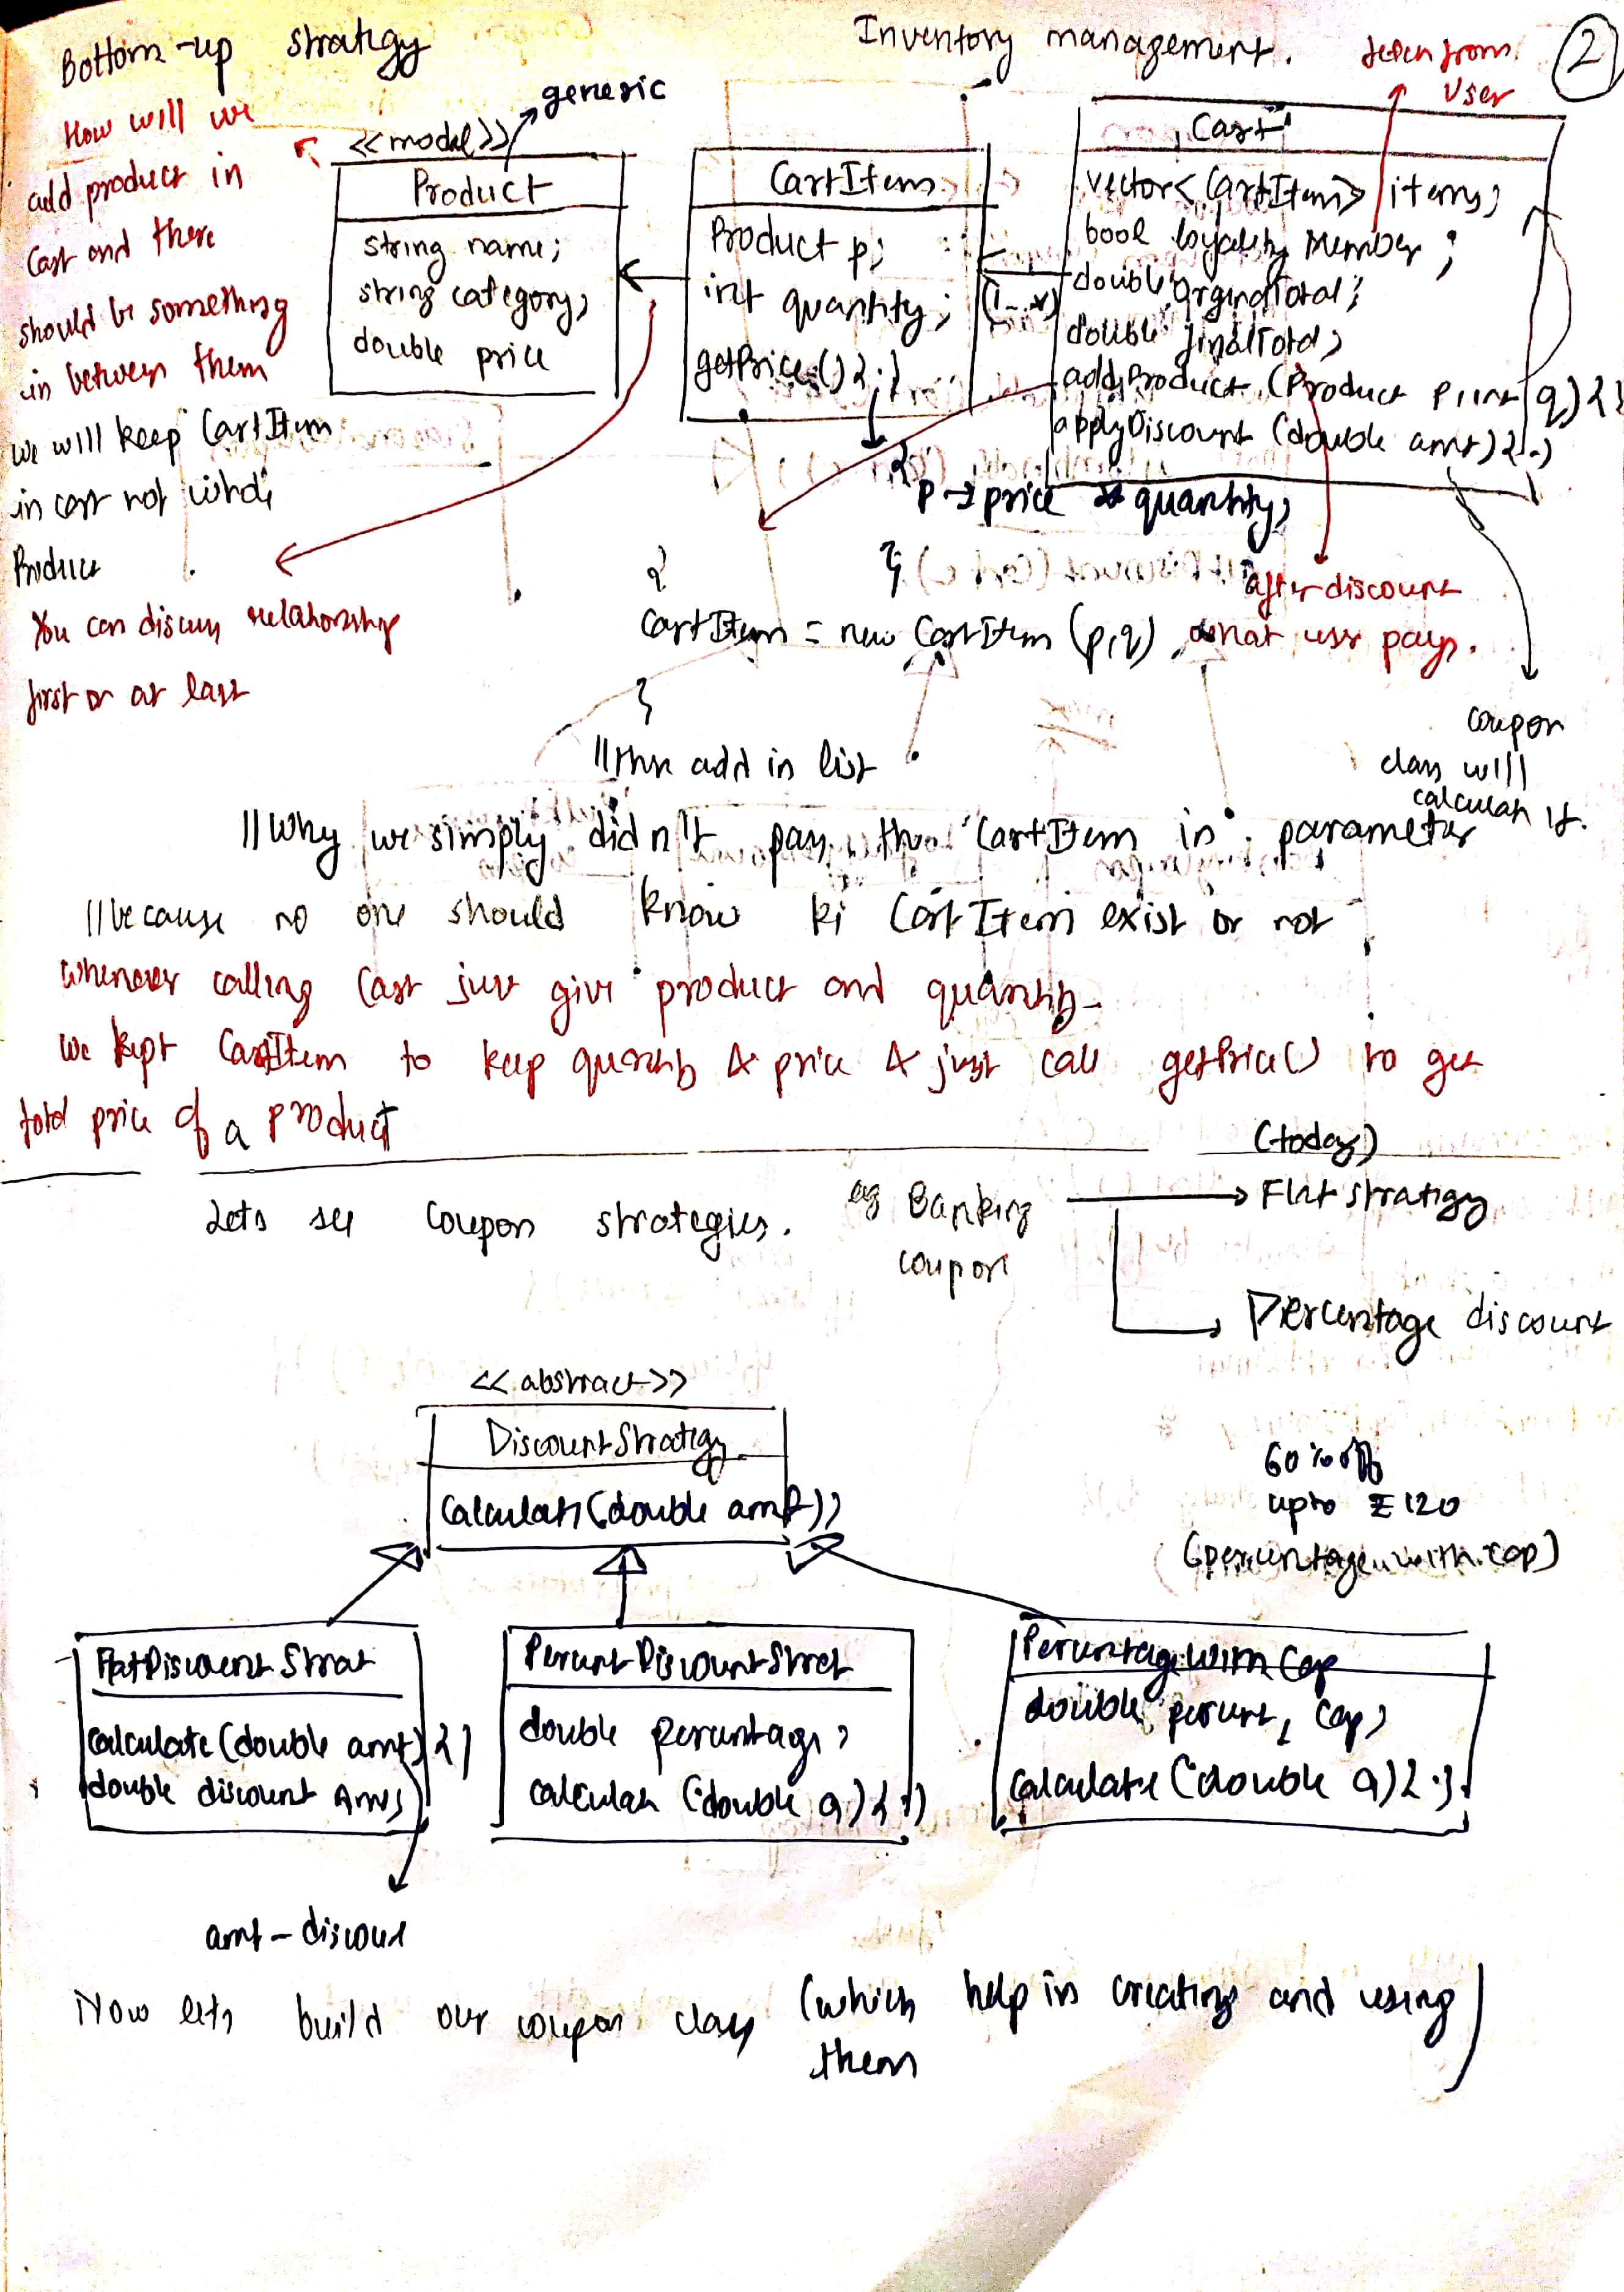 Bottom-up strategy
Inventory management.
taken from
User
2
How will we
add product in
Cart and there
should be something
in between them
we will keep CartItem
in cart not whole
Product
You can discuss relationship
first or at last
<<model>>
generic
Product
string name;
string category;
double price
CartItem
Product p;
int quantity;
getPrice() {.}
{
p → price * quantity;
};
(1...*)
Cart
vector<CartItem> items;
bool loyality Member;
double orginalTotal;
double finalTotal;
addProduct (Product p, int q) {}
applyDiscount (double amt) {.}
{
CartItem = new CartItem (p,q)
}
//then add in list
after discount
what user pays.
coupon
class will
calculate it.
//Why we simply didn't pass the CartItem in parameter
//because no one should know ki CartItem exist or not
whenever calling Cart just give product and quantity
we kept CartItem to keep quantity & price & just call getPrice() to get
total price of a product
Lets see coupon strategies.
eg Banking
coupon
(today)
Flat strategy
Percentage discount
<<abstract>>
DiscountStrategy
Calculate(double amt);
60% off
upto ₹120
(percentage with cap)
FlatDiscountStrat
calculate(double amt) {}
double discount Amt;
amt - discout
PercentDiscountStrat
double percentage;
calculate (double a) {.}
PercentageWithCap
double percent, cap;
calculate (double a) {.}.
Now lets build our coupon class (which help in creating and using
them)